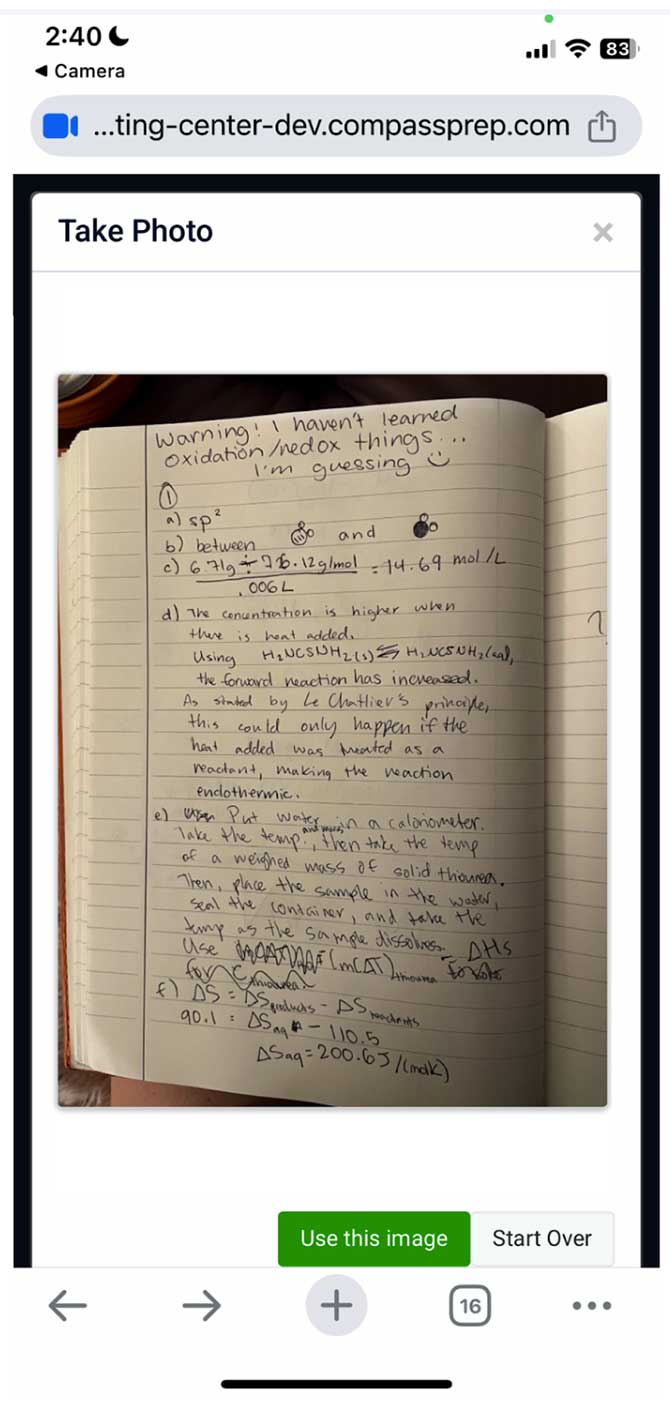 2:40
83
◀ Camera
...ting-center-dev.compassprep.com
Take Photo
×
Warning! I haven't learned
oxidation/redox things...
I'm guessing
①
a) sp²
b) between and
c) 6.71g ÷ 76.12g/mol = 14.69 mol/L
.006L
d) The concentration is higher when
there is heat added.
Using H₂NCSNH₂(s) ⇌ H₂NCSNH₂(aq),
the forward reaction has increased.
As stated by Le Chatlier's principle,
this could only happen if the
heat added was treated as a
reactant, making the reaction
endothermic.
e) Put water in a calorimeter.
Take the temp. and mass, then take the temp
of a weighed mass of solid thiourea.
Then, place the sample in the water,
seal the container, and take the
temp as the sample dissolves.
Use (mCΔT)thiourea = ΔHs
for Cthiourea.
f) ΔS = ΔSproducts - ΔSreactants
90.1 = ΔSaq - 110.5
ΔSaq = 200.6J/(molK)
Use this image
Start Over
16